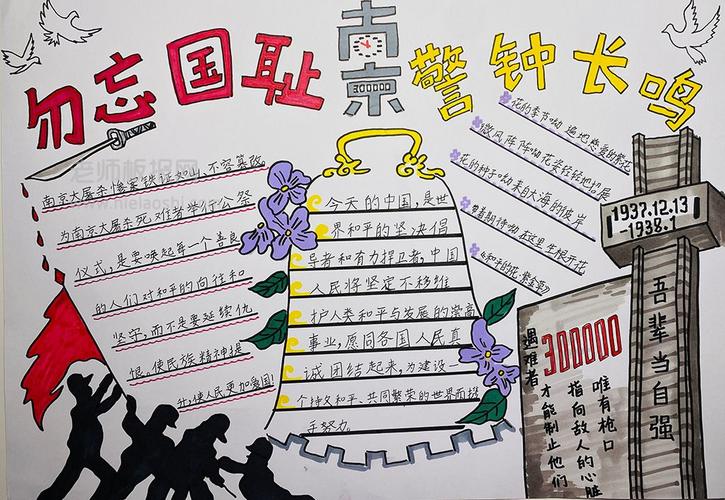 勿忘国耻
南京
警钟长鸣
老师板报网
南京大屠杀惨案铁证如山、不容篡改
为南京大屠杀死难者举行公祭
仪式，是要唤起每一个善良
的人们对和平的向往和
坚守，而不是要延续仇
恨。使民族精神提
升，使人民更加爱国！
今天的中国，是世
界和平的坚决倡
导者和有力捍卫者，中国
人民将坚定不移维
护人类和平与发展的崇高
事业，愿同各国人民真
诚团结起来，为建设一
个持久和平、共同繁荣的世界而携
手努力。
花的季节呦 遍地慈爱的紫花
微风阵阵呦花朵轻轻地招展
花的种子呦来自大海的彼岸
在这里生根开花
《和平的花·紫金草》
1937.12.13
-1938.1
吾辈当自强
遇难者
300000
唯有枪口
指向敌人的心脏
才能制止他们